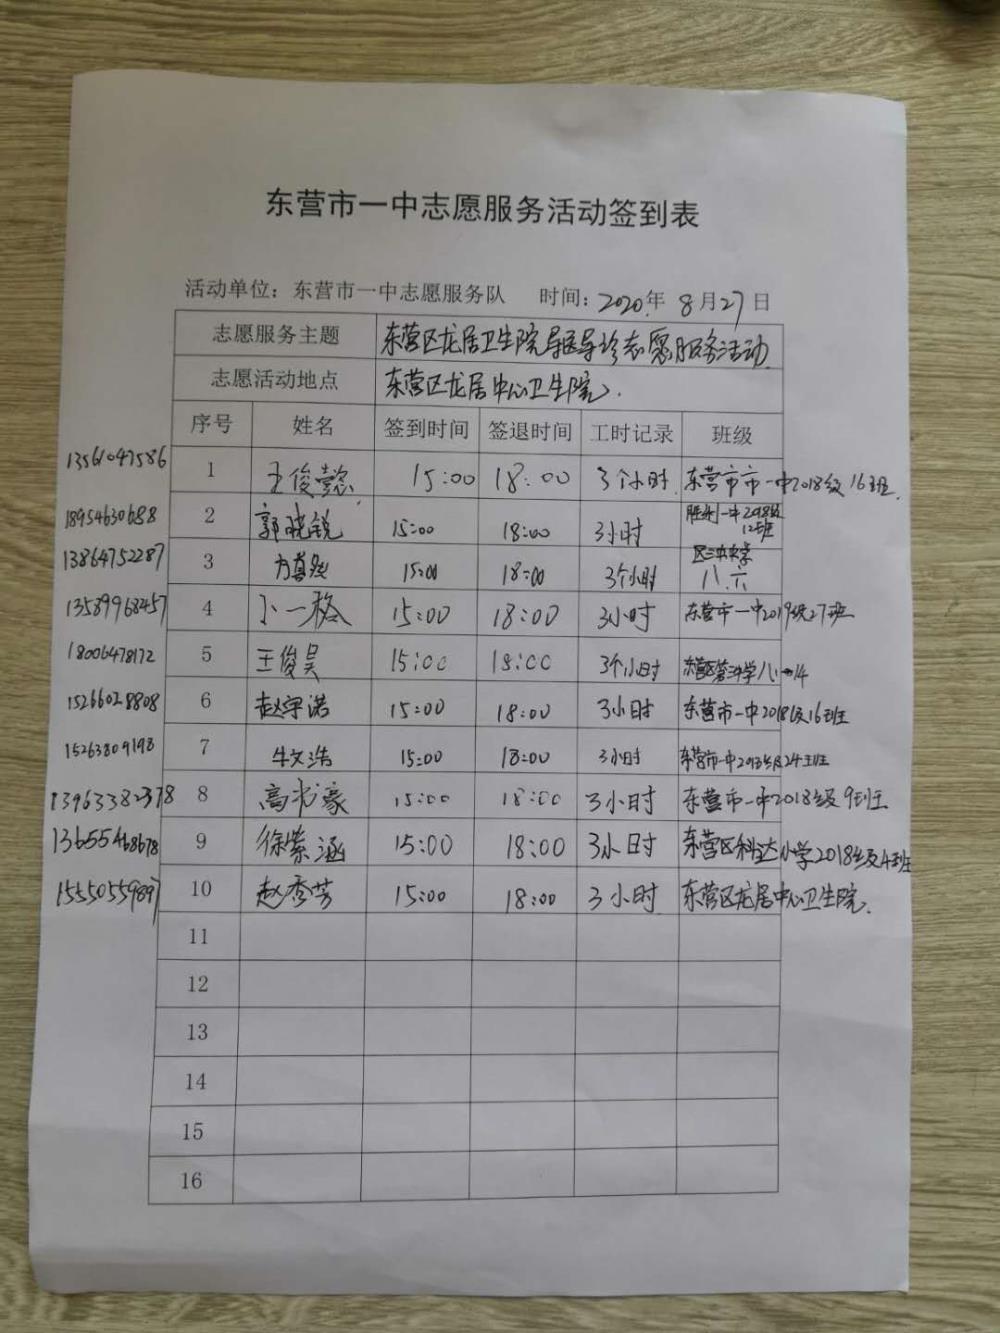 东营市一中志愿服务活动签到表
活动单位：东营市一中志愿服务队 时间：2020年 8月27日
志愿服务主题 东营区龙居卫生院导医导诊志愿服务活动
志愿活动地点 东营区龙居中心卫生院
序号 姓名 签到时间 签退时间 工时记录 班级
13561047586 1 王俊懿 15:00 18:00 3个小时 东营市市一中2018级16班
18954630688 2 郭晓锐 15:00 18:00 3小时 胜利一中2018级12班
13864752287 3 方真 15:00 18:00 3个小时 八.六
13589968457 4 卜一格 15:00 18:00 3小时 东营市一中2019级27班
18006478172 5 王俊昊 15:00 18:00 3个小时 东营区
15266028808 6 赵宇诺 15:00 18:00 3小时 东营市一中2018级16班
15263809198 7 牛文浩 15:00 18:00 3小时 东营市一中2018级24班
13963382378 8 高 豪 15:00 18:00 3小时 东营市一中2018级9班
13655468678 9 徐紫涵 15:00 18:00 3小时 东营区科达小学2018级4班
15550559897 10 赵秀芳 15:00 18:00 3小时 东营区龙居中心卫生院
11
12
13
14
15
16